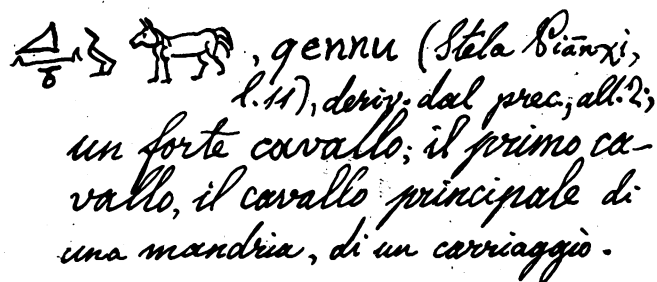 , qennu (Stela Piānχi,
l.11), deriv. dal prec., all. 2;
un forte cavallo; il primo ca-
vallo, il cavallo principale di
una mandria, di un carriaggio.